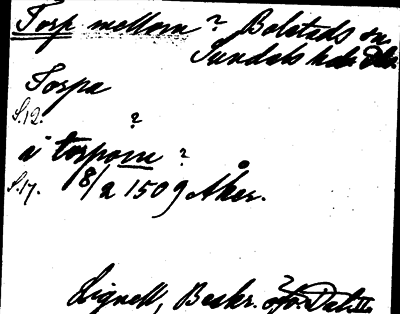 Torp mellom? Bolstads sn
Sundals hd. Dls.
Torpa
S.12.
?
i torpom ?
S.17. 8/2 1509 Åker.
Lignell, Beskr. öfv. Dal. II